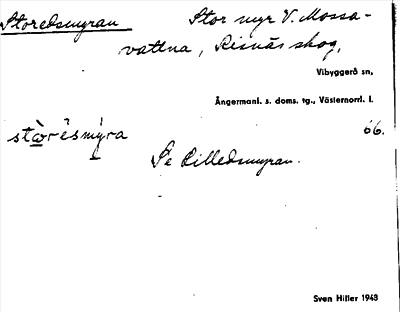 Storedsmyran Stor myr V. Mossa-
vattna, Risnäs skog,
Vibyggerå sn,
Ångermanl. s. doms. tg., Västernorrl. l.
stọ̀rèsmýra 66.
Se Lilledsmyran.
Sven Hiller 1943